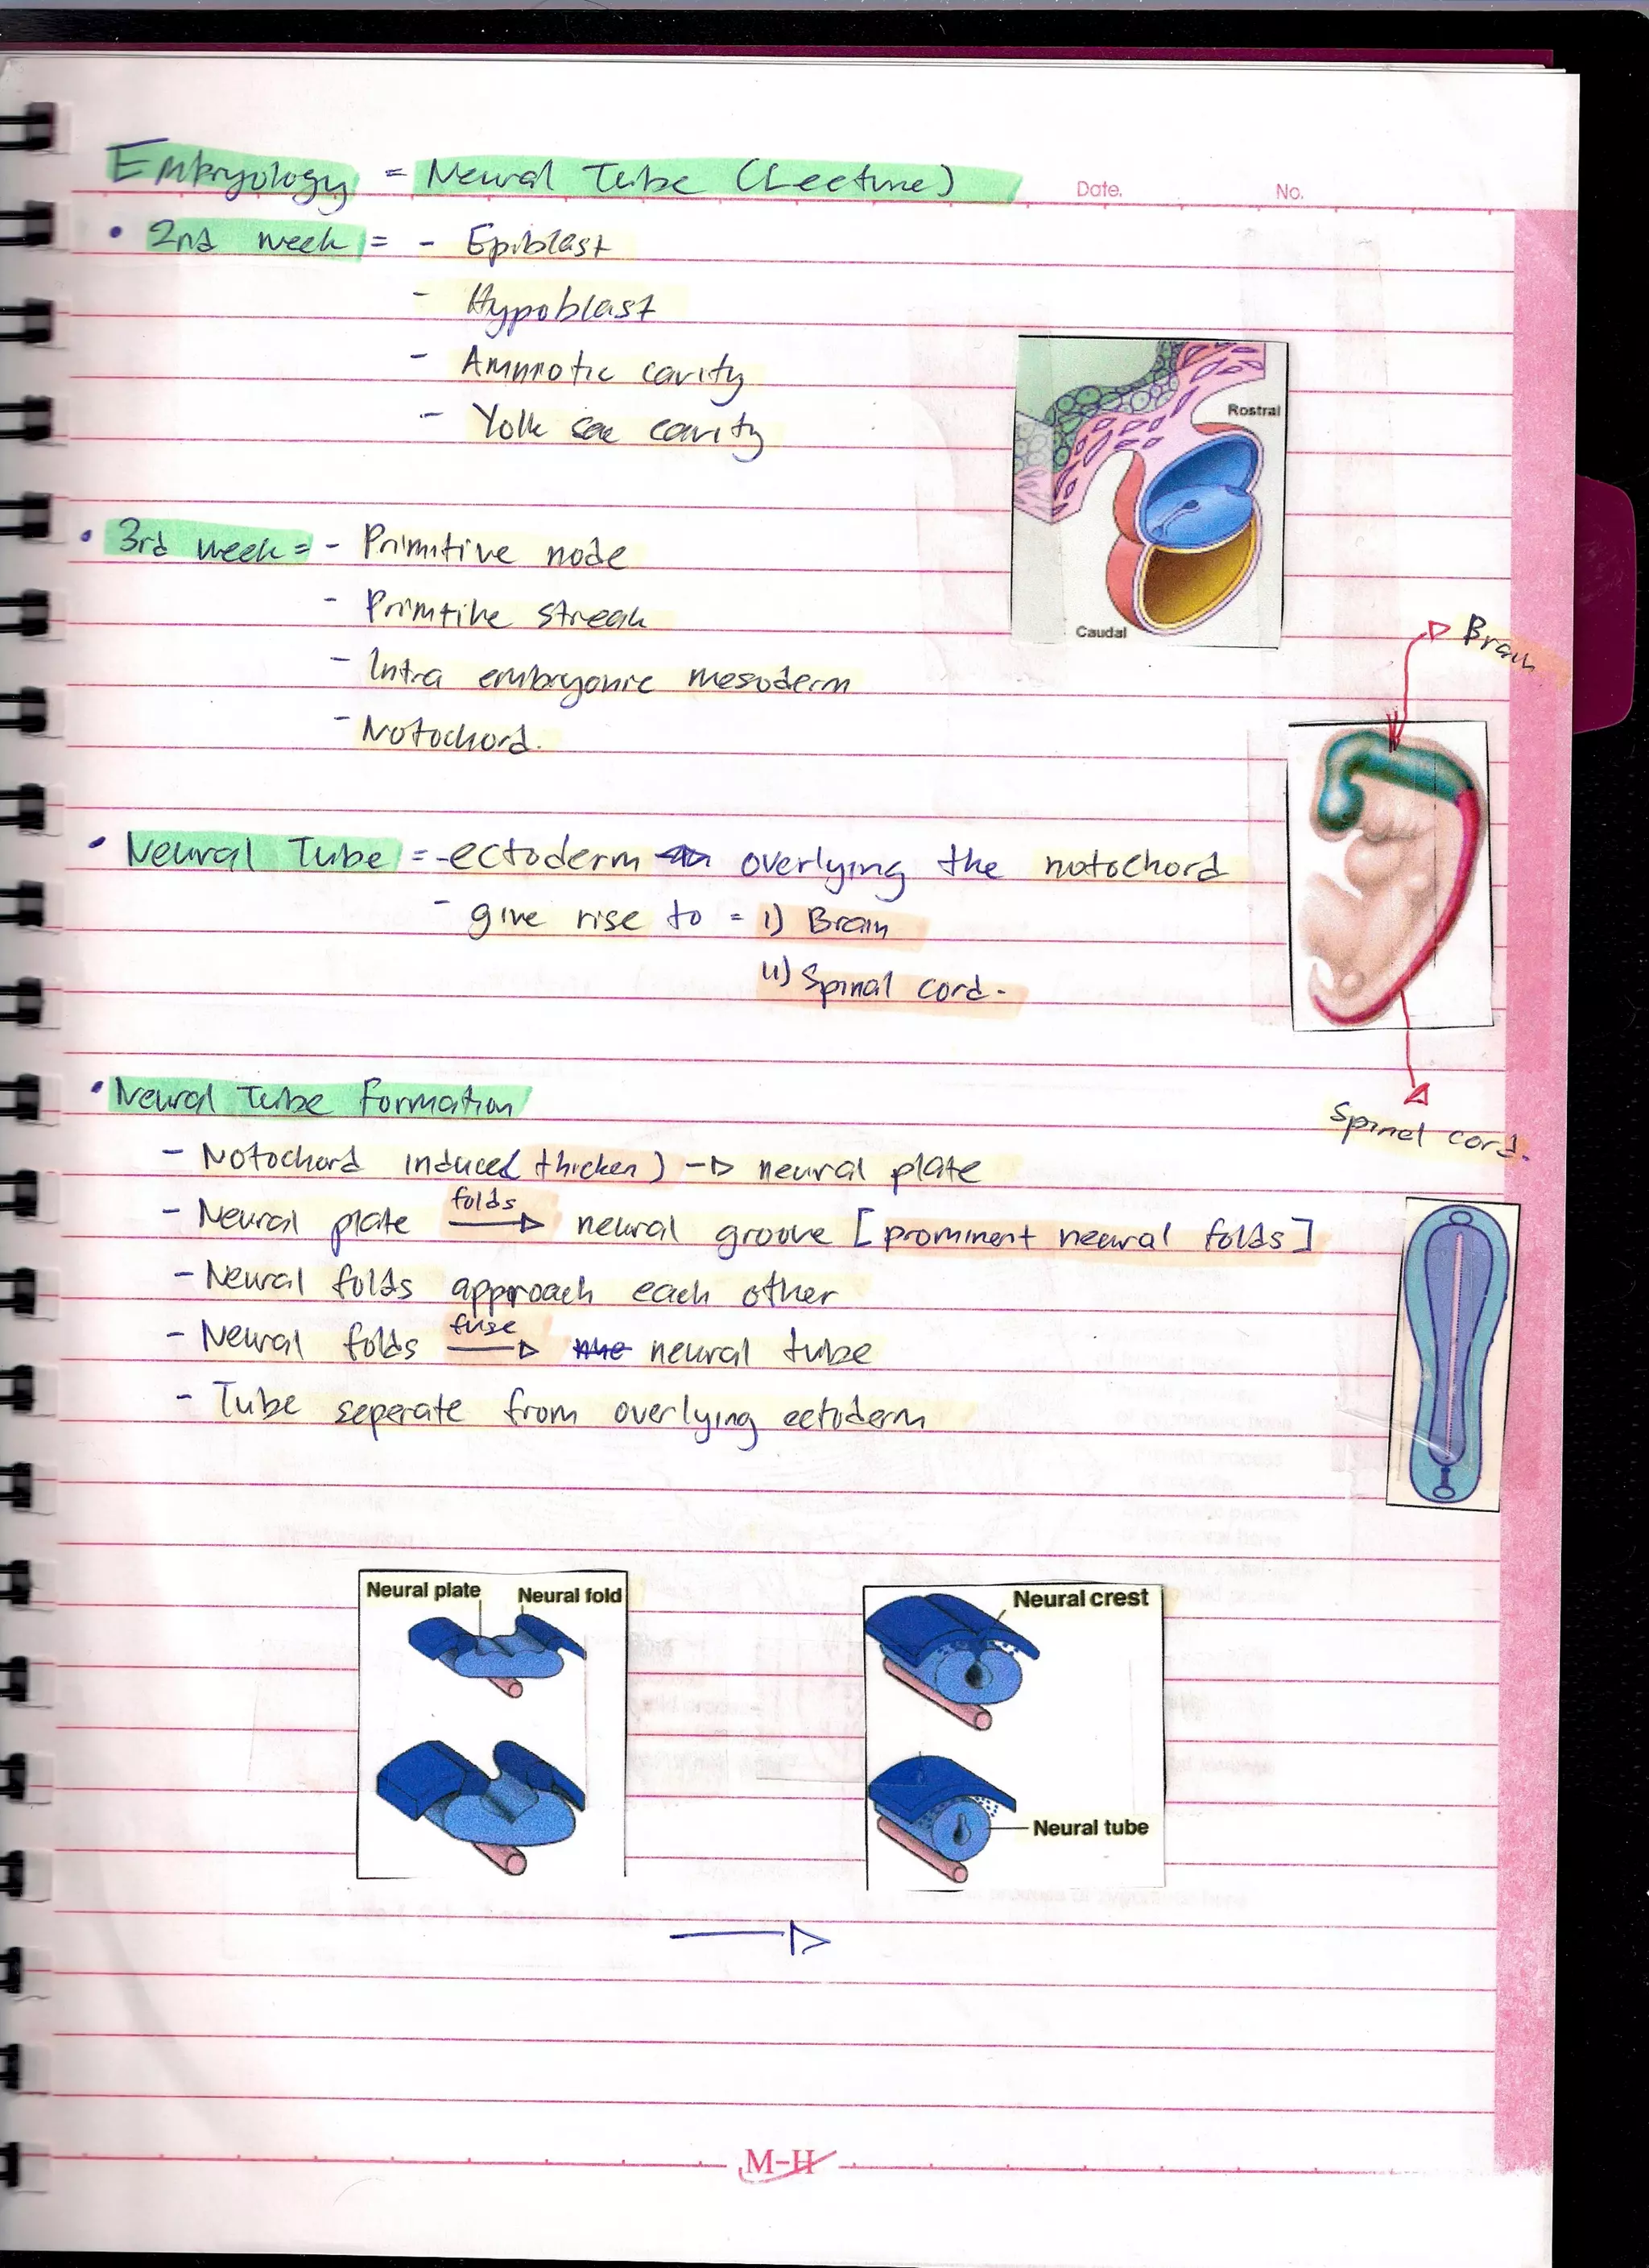 Embryology = Neural Tube (Lecture)
Date. No.
• 2nd week = - Epiblast
- Hypoblast
- Amniotic cavity
- Yolk sac cavity
Rostral
Caudal
• 3rd week = - Primitive node
- Primtive streak
- Intra embryonic mesoderm
- Notochord.
Brain
• Neural Tube = - ectoderm overlying the notochord
- give rise to = i) Brain
ii) Spinal cord.
Spinal cord.
• Neural Tube Formation
- Notochord induced (thicken) → neural plate
- Neural plate folds → neural groove [prominent neural folds]
- Neural folds approach each other
- Neural folds fuse → neural tube
- Tube seperate from overlying ectoderm
Neural plate Neural fold
Neural crest
Neural tube
M-H